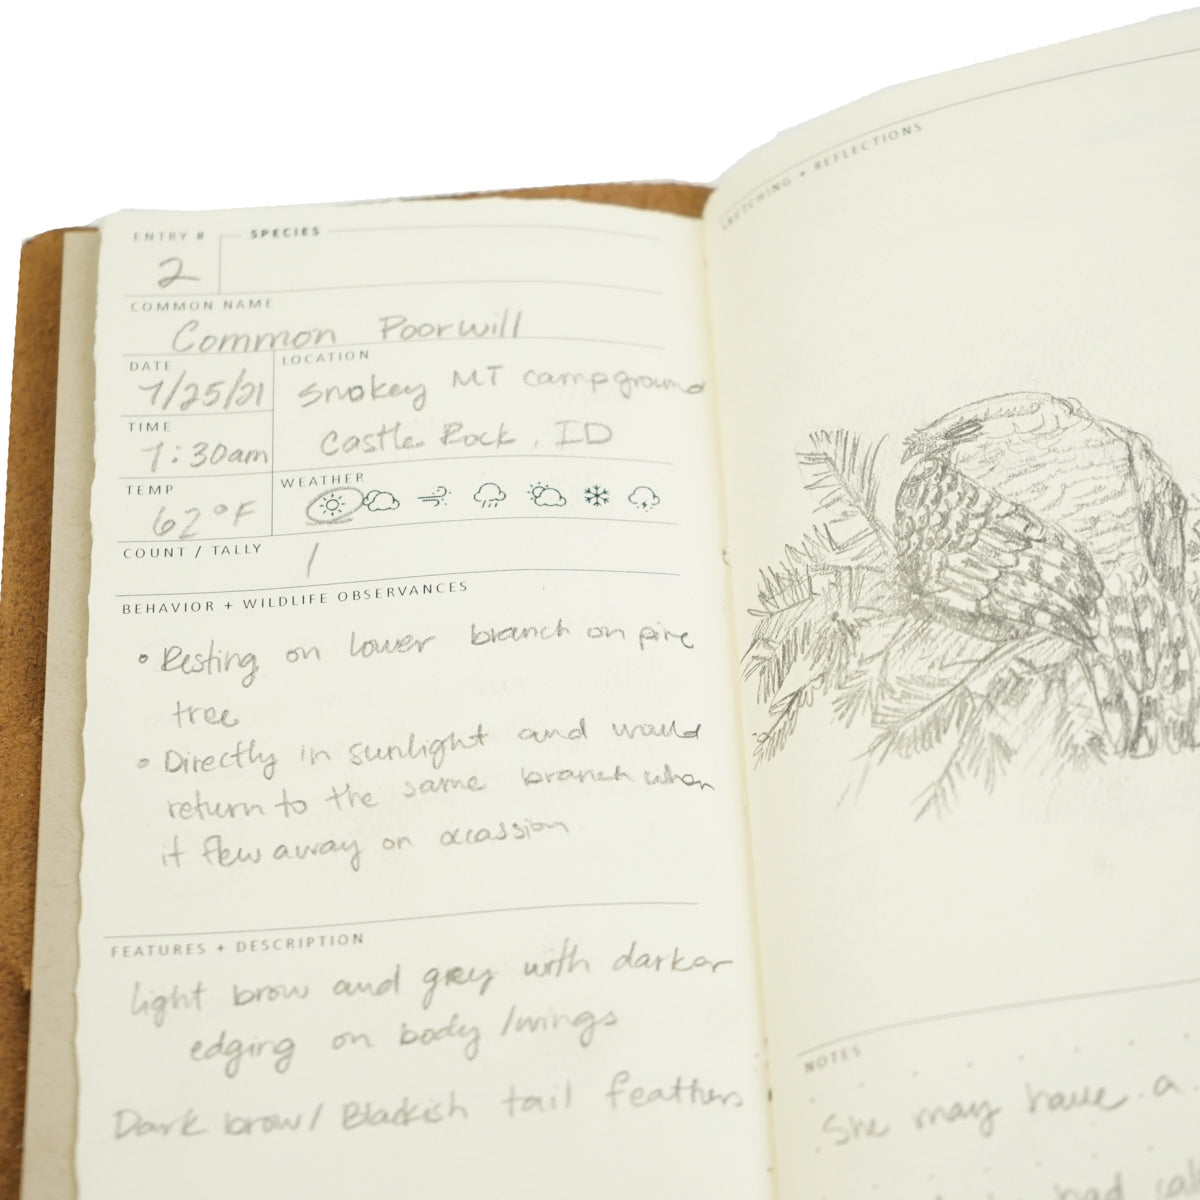 ENTRY #
SPECIES
2
COMMON NAME
Common Poorwill
DATE
7/25/21
LOCATION
Smokey MT campground
Castle Rock, ID
TIME
7:30am
TEMP
62°F
WEATHER
COUNT / TALLY
1
BEHAVIOR + WILDLIFE OBSERVANCES
• Resting on lower branch on pine
tree
• Directly in sunlight and would
return to the same branch when
it flew away on occassion.
FEATURES + DESCRIPTION
light brow and grey with darker
edging on body/wings
Dark brow/Blackish tail feathers
SKETCHING + REFLECTIONS
NOTES
She may have a
bad